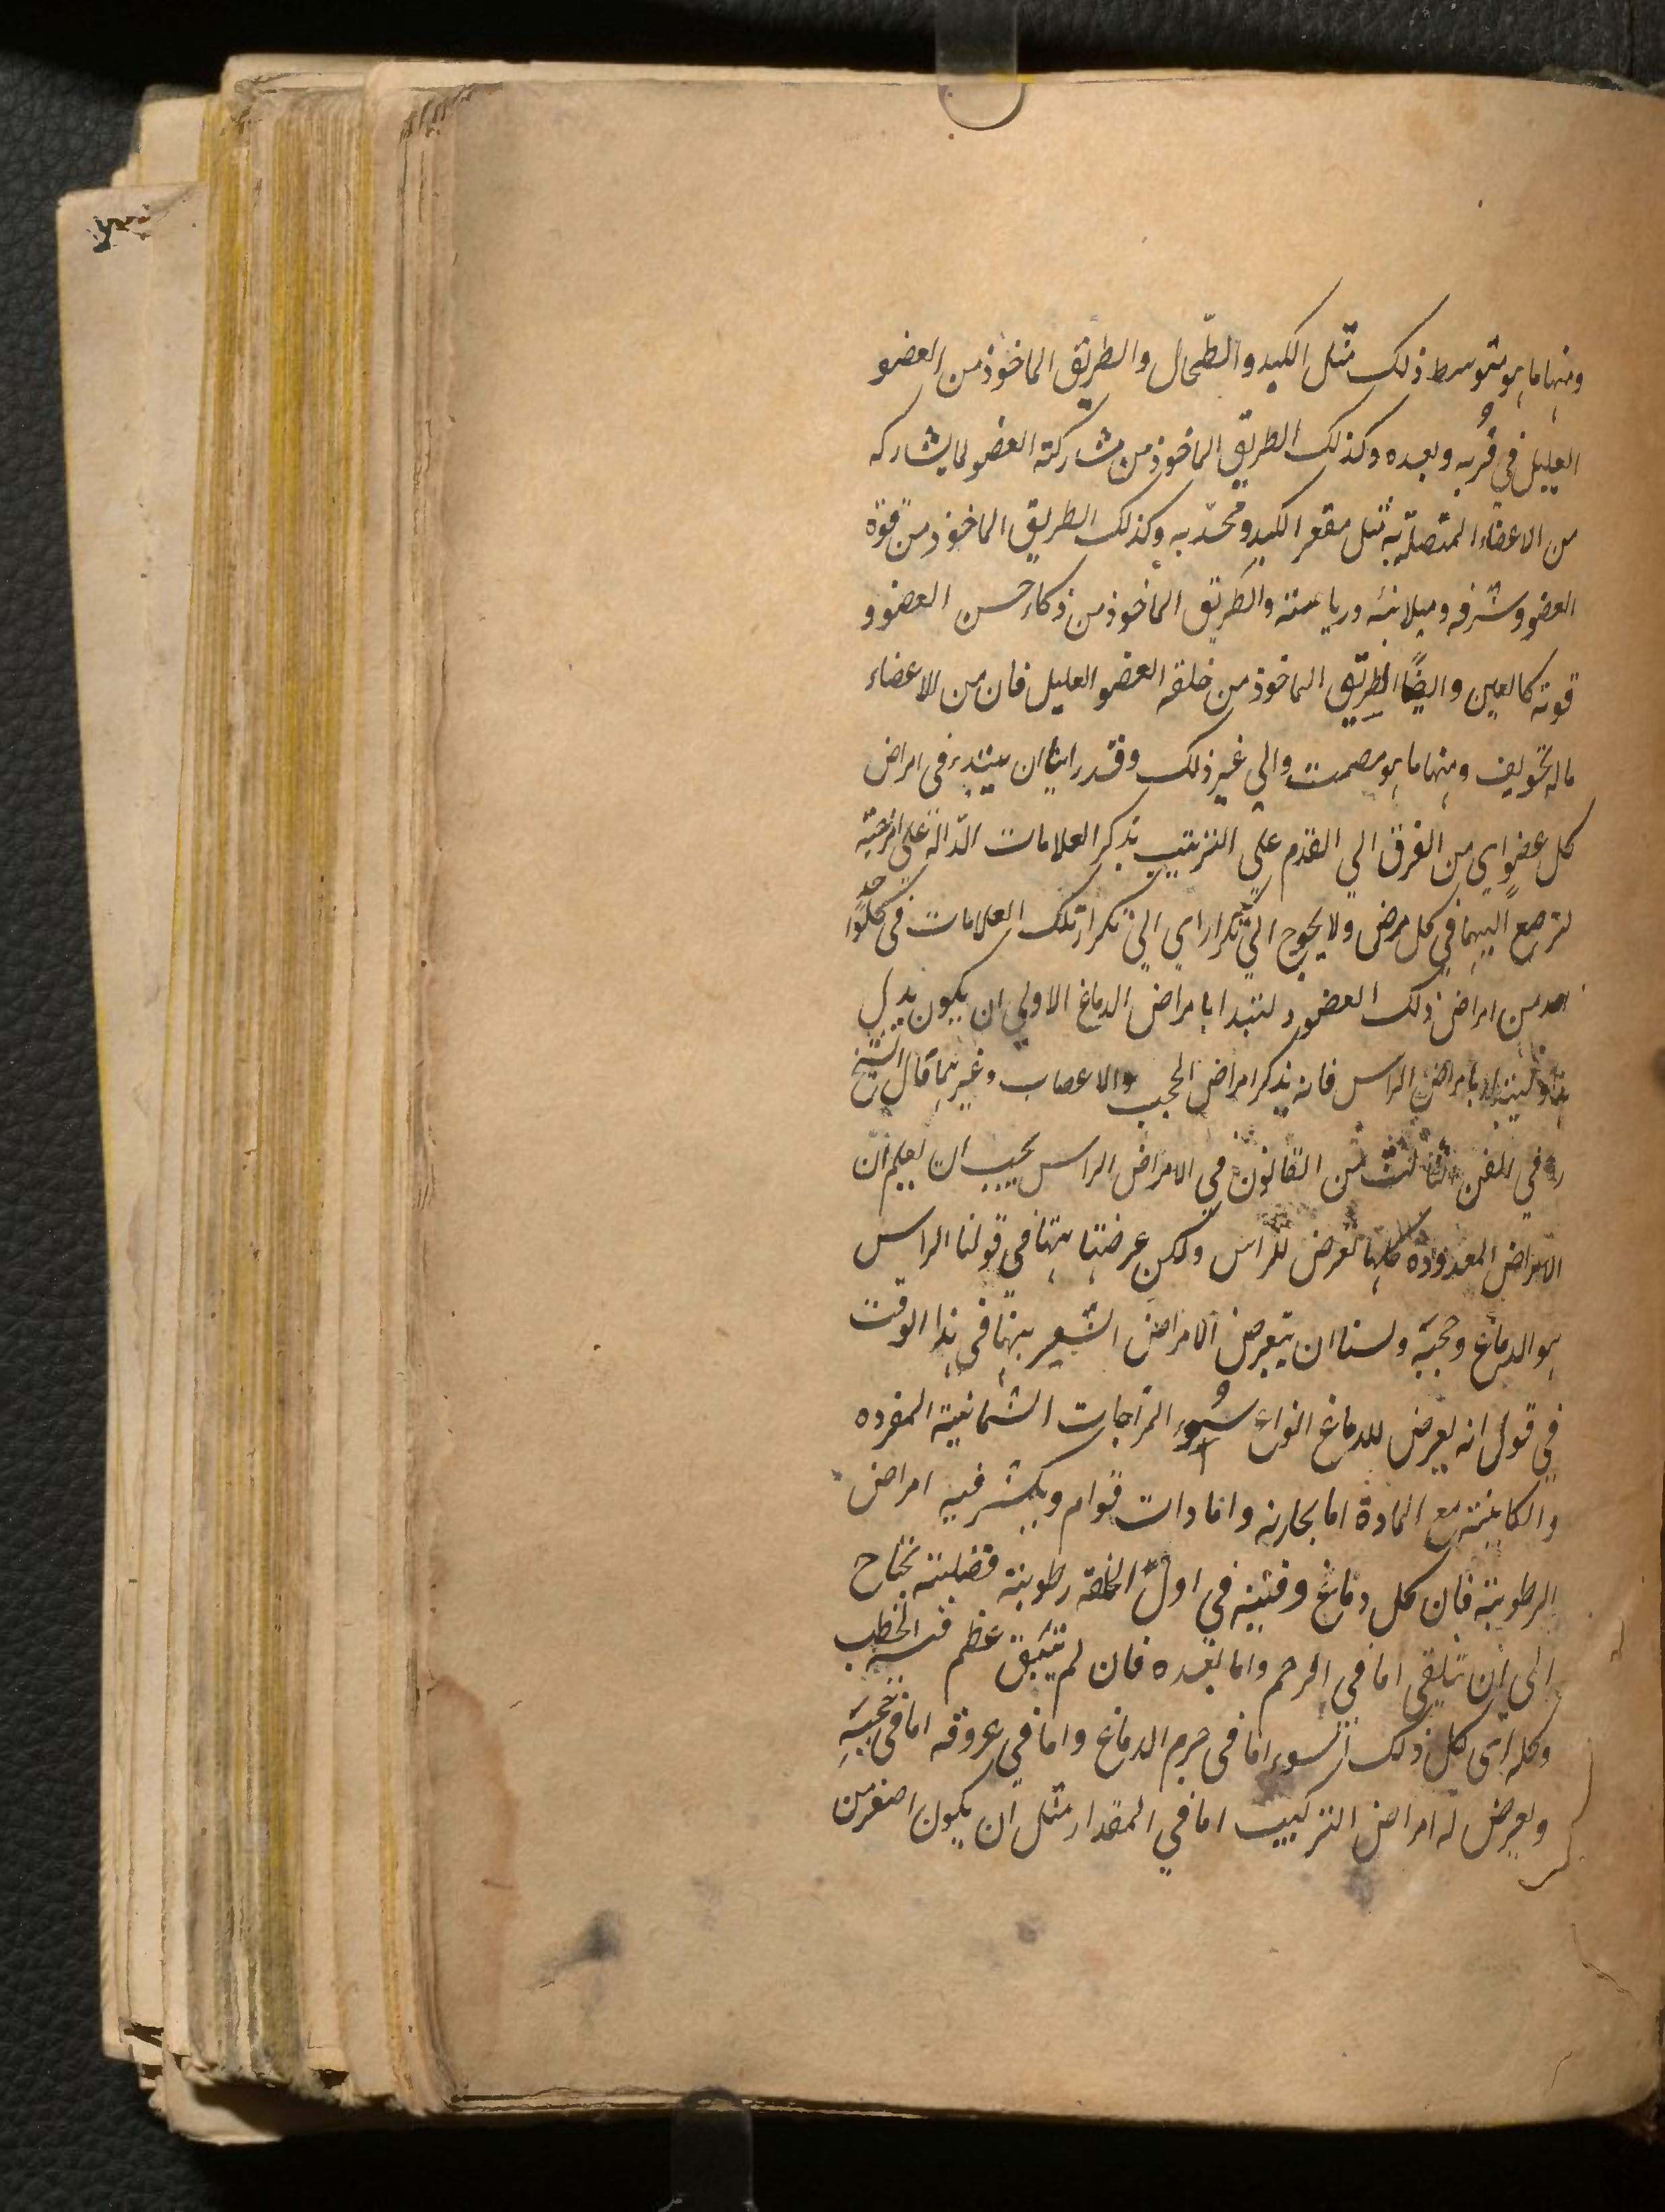 ومنها ما هو متوسط ذلك مثل الكبد والطّحال والطريق الماخوذ من العضو
العليل في قُربه وبعده وكذلك الطريق الماخوذ من مشاركة العضو لما يشاركه
من الاعضاء المتصلة به مثل مقعر الكبد ومحدّبه وكذلك الطريق الماخوذ من قوة
العضو وشرفه ومبلانيه ورياسته والطريق الماخوذ من ذكاء حسن العضو و
قوته كالعين وايضًا الطريق الماخوذ من خلقه العضو العليل فان من الاعضاء
ماله تجويف ومنها ما هو مصمت والي غير ذلك وقد راينا ان يبتدء في امراض
كل عضوٍ اي من الفرق الي القدم علي الترتيب بذكر العلامات الدّالة علي امزجته
لترجع اليها في كل مرض ولا يحوج الي تكرار اي الي تكرار تلك العلامات في كل واحد
احد من امراض ذلك العضو ولنبدا بامراض الدماغ الاولي ان يكون بدل
هذا ولنبتدا بامراض الراس فانه يذكر امراض الحجب والاعصاب وغيرهما قال الشيخ
ره في الفن الثالث من القانون في الامراض الراس يجب ان يعلم ان
الامراض المعدوده كلها تعرض للراس ولكن غرضنا ههنا في قولنا الراس
هو الدماغ وحجبه ولسنا ان يتعرض الامراض الشعر ههنا في هذا الوقت
في قول انه يعرض للدماغ انواع سُوء المزاجات الثمانية المفرده
والكاينة مع المادة اما بخارية واما دات قوام ويكثر فيه امراض
الرطوبة فان كل دماغ وفيه في اول الخلقة رطوبة فضلية تحتاج
الي ان تنقي اما في الرحم واما بعده فان لم تنق عظم فيه الخطب
وكله اي كل ذلك السوء اما في جرم الدماغ واما في عروقه اما في حجبه
ويعرض له امراض التركيب اما في المقدار مثل ان يكون اصغر من